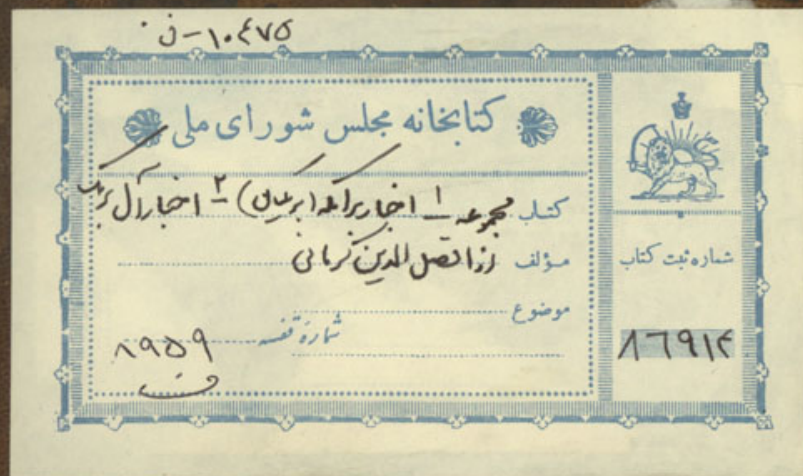 ۱۰۴۷۵-ف
کتابخانه مجلس شورای ملی
کتاب مجموعه ۱ اخبار برامکه (برمکیان) ۲ - اخبار آل برمک
مؤلف از افضل الدین کرمانی
موضوع
شماره قفسه
۸۹۵۹
شماره ثبت کتاب
۸۶۹۱۴